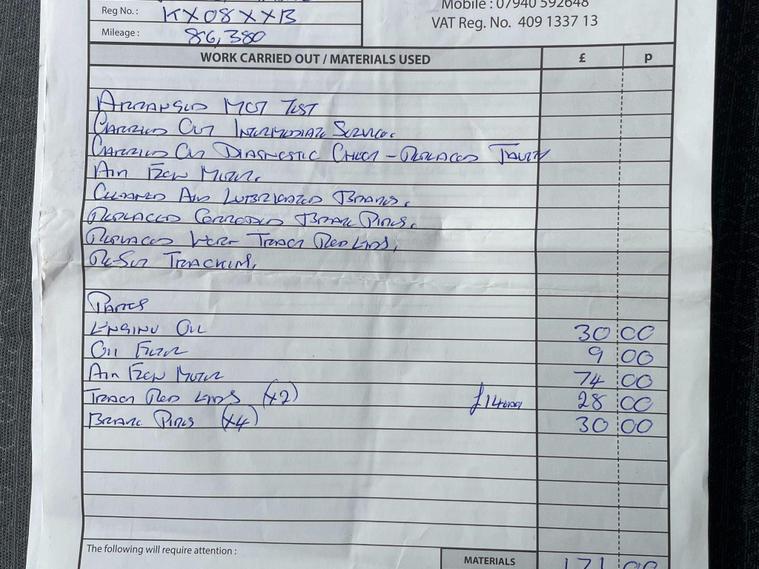 Mobile : 07940 592648
Reg No. : KX08XXB
VAT Reg. No. 409 1337 13
Mileage : 86,380
WORK CARRIED OUT / MATERIALS USED £ p
ARRANGED MOT TEST
CARRIED OUT INTERMEDIATE SERVICE.
CARRIED OUT DIAGNOSTIC CHECK - REPLACED FAULTY
AIR FLOW METER.
CLEANED AND LUBRICATED BRAKES.
REPLACED CORRODED BRAKE PIPES.
REPLACED WORN TRACK ROD ENDS.
RE-SET TRACKING.
PARTS
ENGINE OIL 30 00
OIL FILTER 9 00
AIR FLOW METER 74 00
TRACK ROD ENDS (x2) £14 28 00
BRAKE PIPES (x4) 30 00
The following will require attention :
MATERIALS 171 00